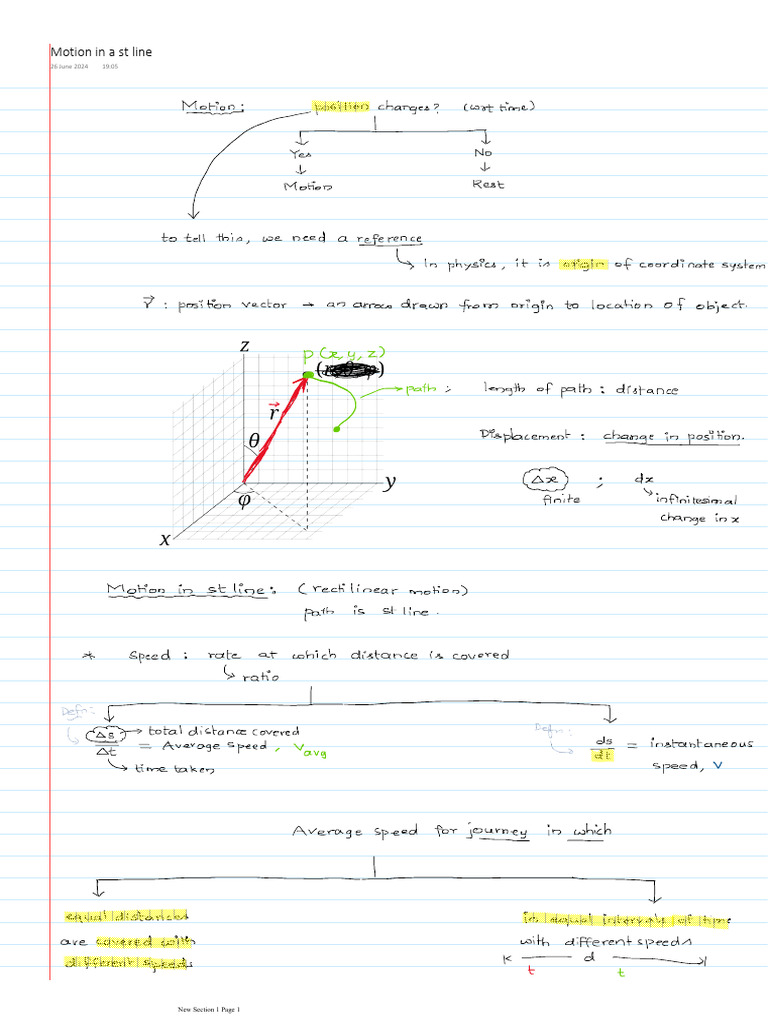 Motion in a st line
26 June 2024 19:05
Motion: position changes? (wrt time)
Yes No
Motion Rest
to tell this, we need a reference
In physics, it is origin of coordinate system
r⃗ : position vector → an arrow drawn from origin to location of object.
z
P (x, y, z)
path ; length of path : distance
r⃗
θ
Displacement : change in position.
y
Δx ; dx
φ
finite infinitesimal
change in x
x
Motion in st line : (rectilinear motion)
path is st line .
* Speed : rate at which distance is covered
ratio
Defn:
Δs → total distance covered
Δt = Average speed , Vavg
time taken
Defn:
ds
dt = instantaneous
speed, V
Average speed for journey in which
equal distances
are covered with
different speeds
in equal intervals of time
with different speeds
d
t t
New Section 1 Page 1